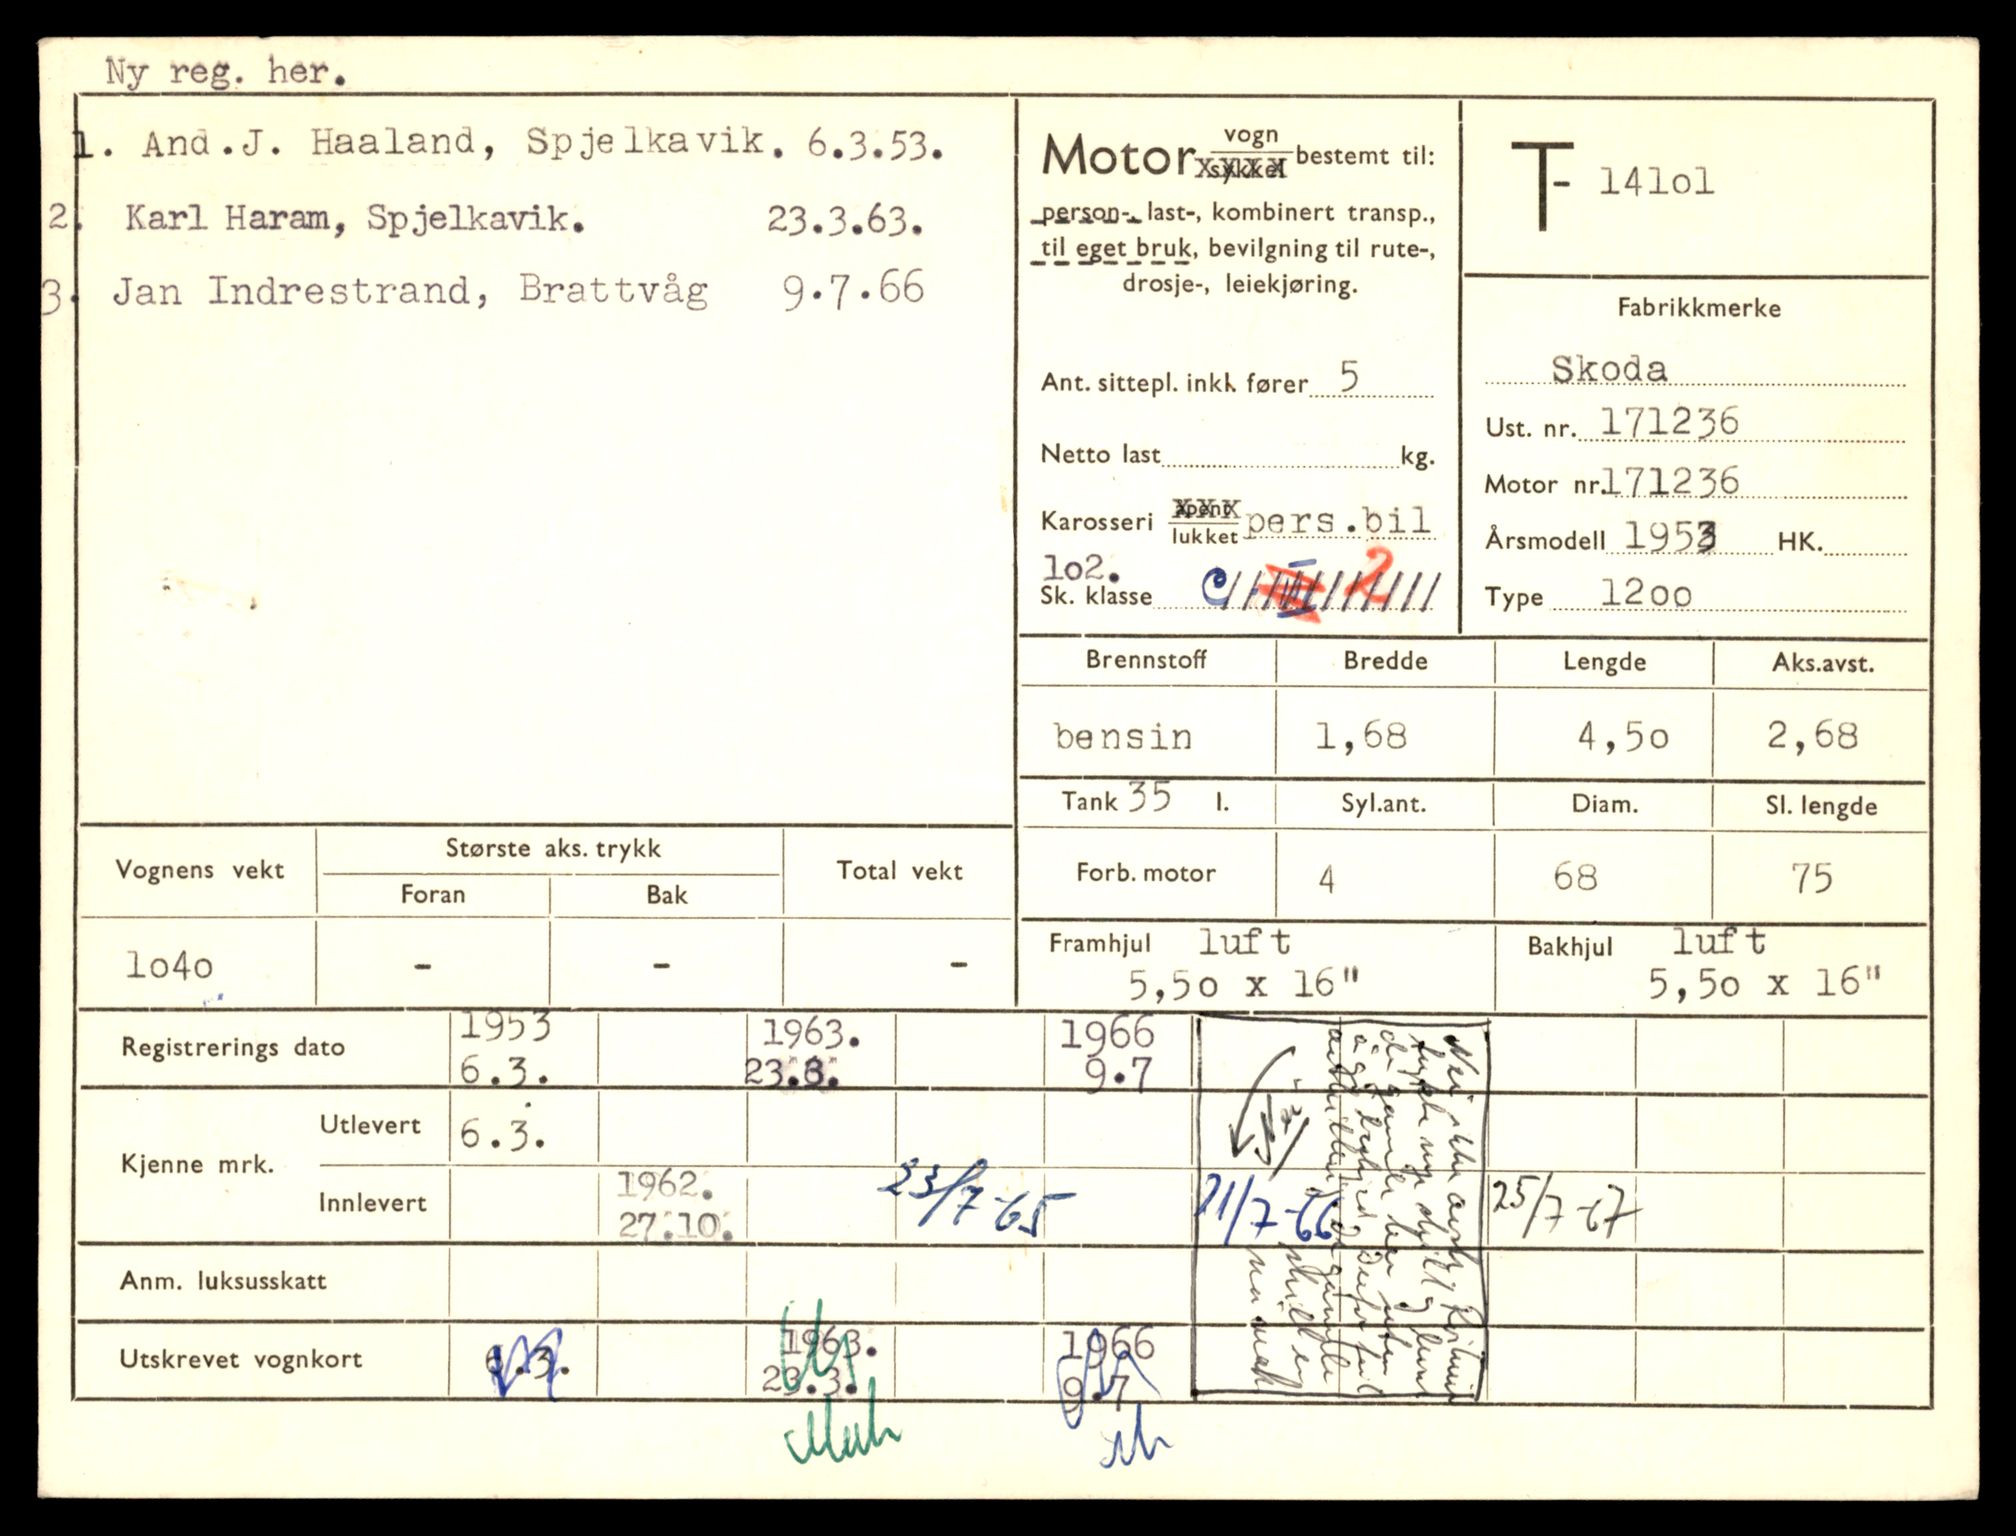 Ny reg. her.
1. And.J. Haaland, Spjelkavik. 6.3.53.
2. Karl Haram, Spjelkavik. 23.3.63.
3. Jan Indrestrand, Brattvåg 9.7.66
Motor vogn sykkel bestemt til:
person-, last-, kombinert transp.,
til eget bruk, bevilgning til rute-,
drosje-, leiekjøring.
Ant. sittepl. inkl. fører 5
Netto last kg.
Karosseri åpent lukket pers.bil
1o2.
Sk. klasse 2
T- 141o1
Fabrikkmerke
Skoda
Ust. nr. 171236
Motor nr. 171236
Årsmodell 1953 HK.
Type 12oo
Brennstoff Bredde Lengde Aks.avst.
bensin 1,68 4,5o 2,68
Tank 35 l. Syl.ant. Diam. Sl. lengde
Forb. motor 4 68 75
Framhjul luft Bakhjul luft
5,5o x 16" 5,5o x 16"
Vognens vekt Største aks. trykk Total vekt
Foran Bak
1o4o - - -
Registrerings dato 1953 1963. 1966
6.3. 23.3. 9.7
Kjenne mrk. Utlevert 6.3.
Innlevert 1962. 23/7-65 21/7-66 25/7-67
27.10.
Anm. luksusskatt
Utskrevet vognkort 6.3. 1963. 1966
23.3. 9.7